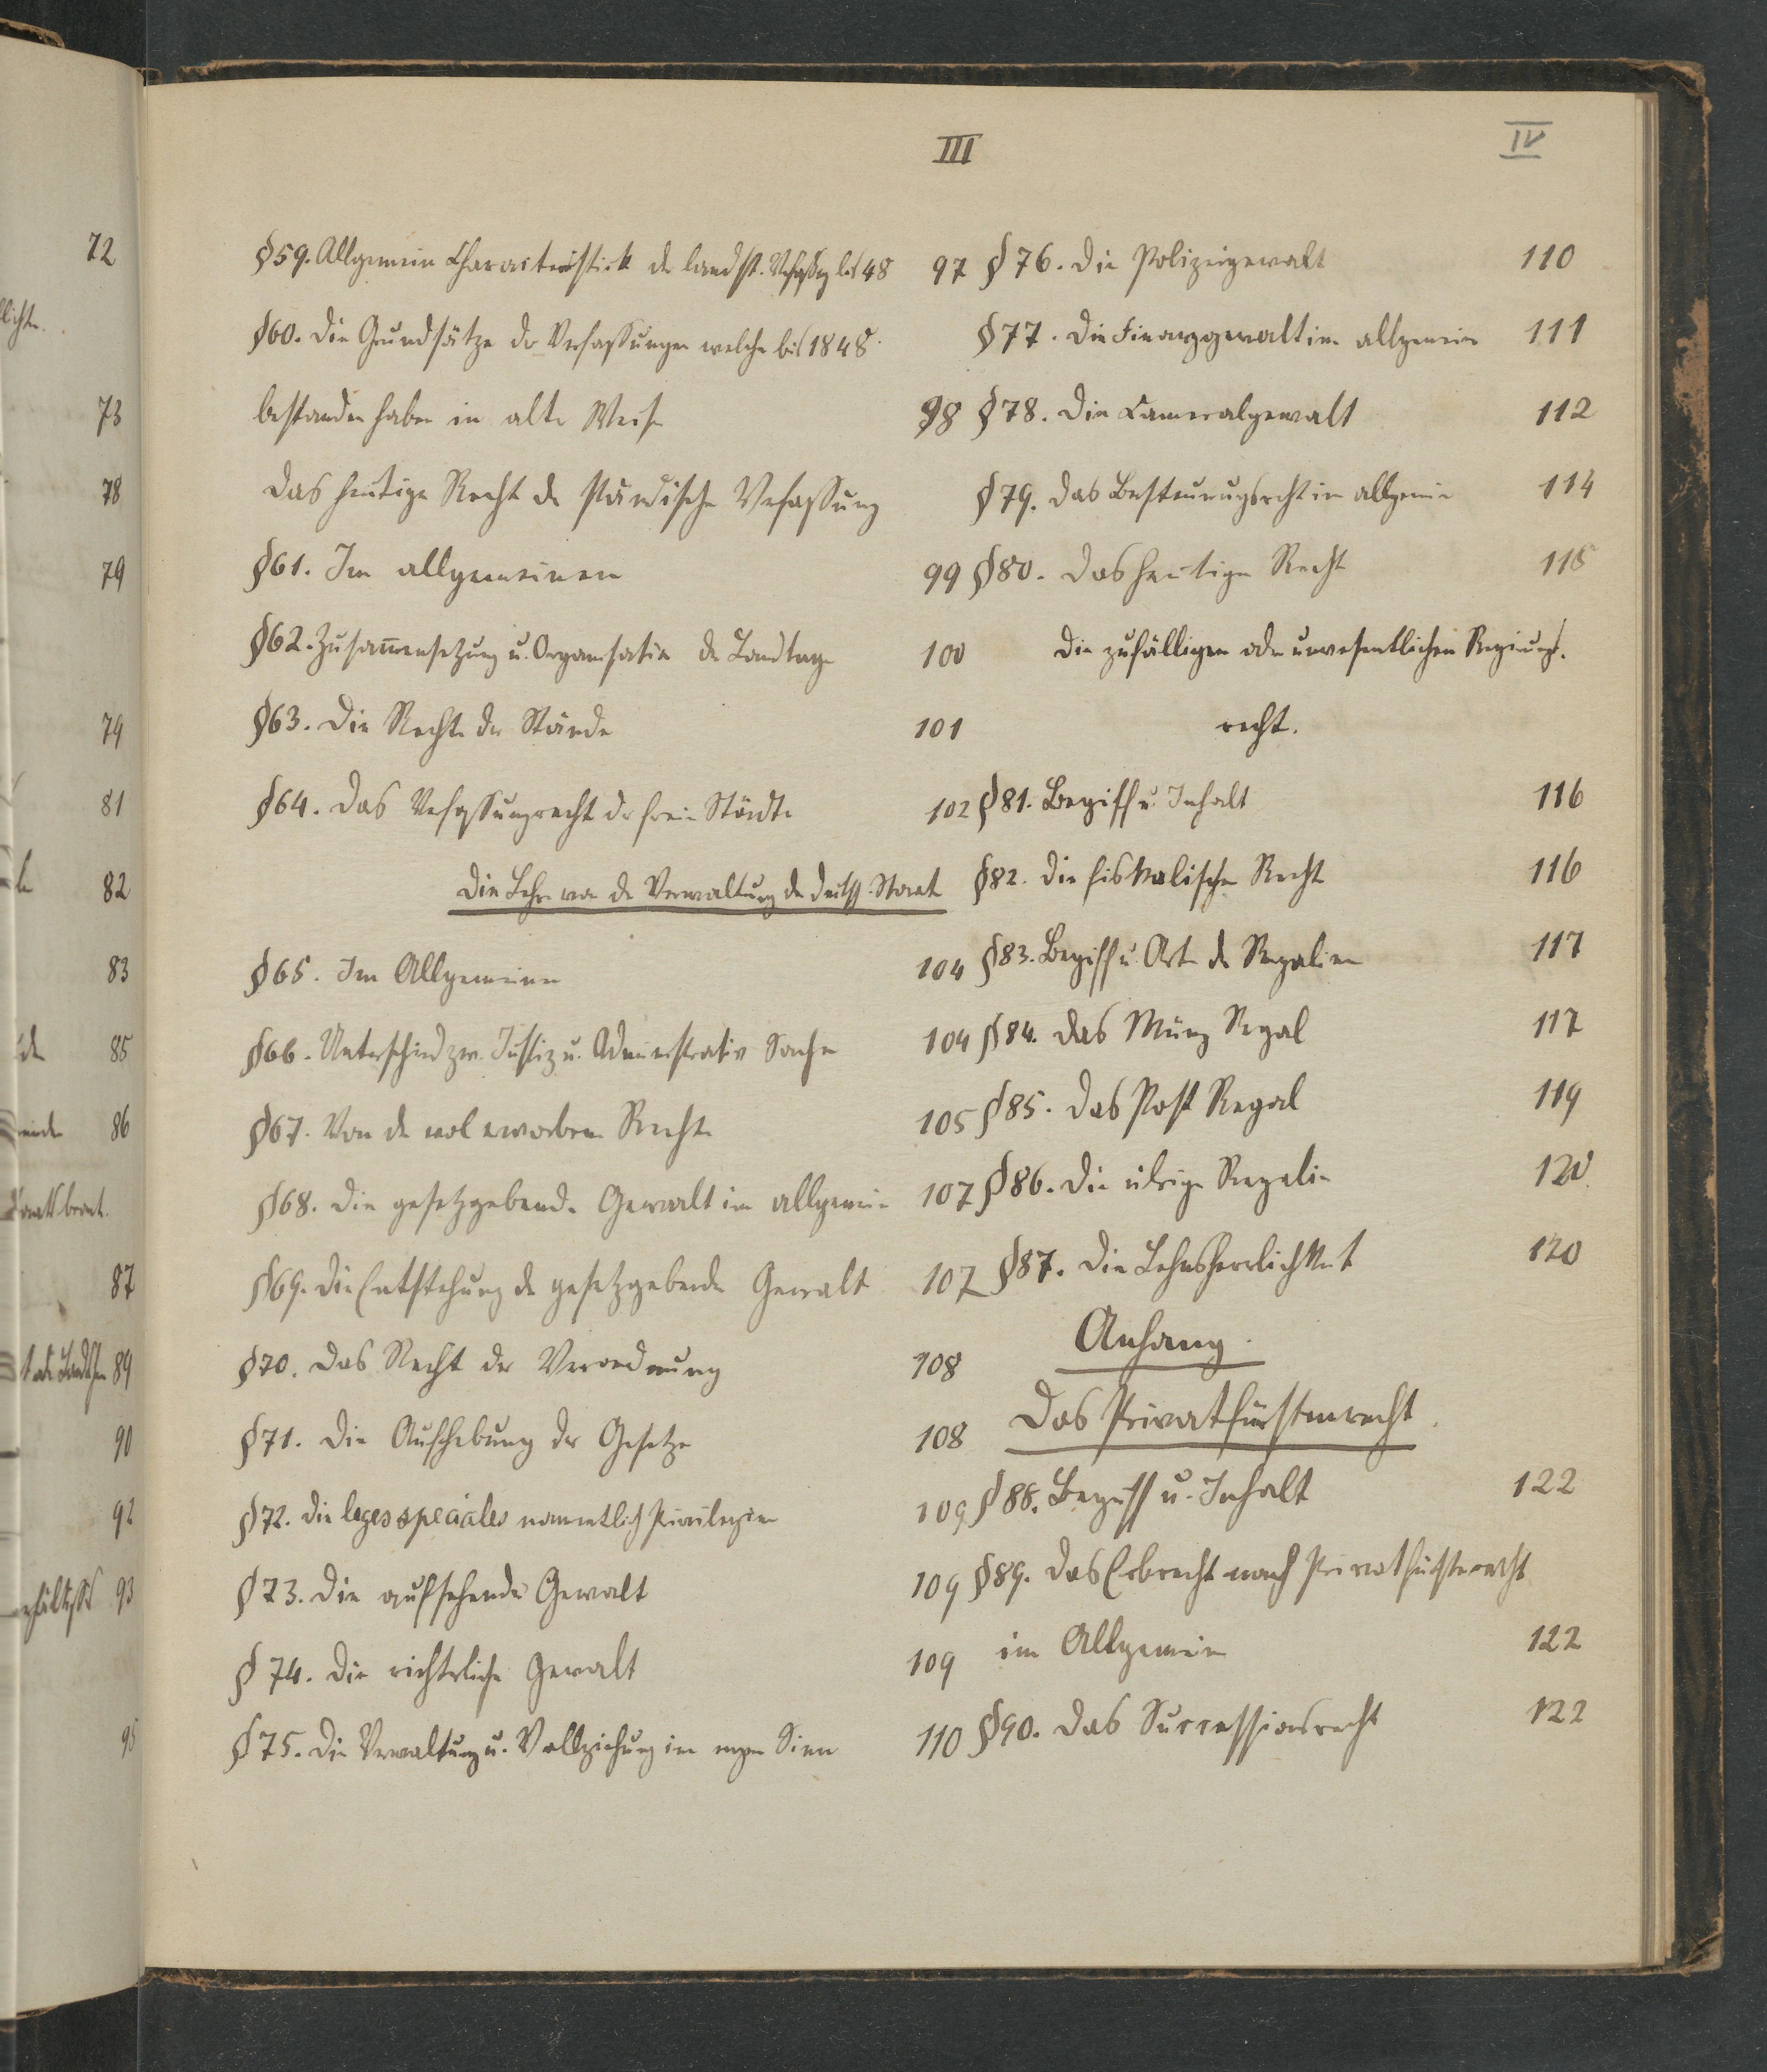 III
IV
§59. Allgemein Charakteristick der landst. Verfassg bis 48 97
§60. Die Grundsätze der Verfassungen welche bis 1848
bestanden haben in alter Weise 98
Das heutige Recht der ständischen Verfassung
§61. Im allgemeinen 99
§62. Zusam̄ensetzung u. Organisation der Landtage 100
§63. Die Rechte der Stände 101
§64. Das Verfassungsrecht der freien Städte 102
Die Lehre von der Verwaltung der deutsch. Staat
§65. Im Allgemeinen 104
§66. Unterschied zw. Justiz u. Administrativ Sachen 104
§67. Von den wol erworbenen Rechten 105
§68. Die gesetzgebende Gewalt im allgemein 107
§69. Die Entstehung der gesetzgebenden Gewalt 107
§70. Das Recht der Verordnung 108
§71. Die Aufhebung der Gesetze 108
§72. Die leges speciales namentlich Privilegien 109
§73. Die aufsehende Gewalt 109
§74. Die richterliche Gewalt 109
§75. Die Verwaltung u. Vollziehung im engen Sinn 110
§76. Die Polizeigewalt 110
§77. Die Finanzgewalt im allgemein 111
§78. Die Cameralgewalt 112
§79. Das Besteurungsrecht im allgemein 114
§80. Das heutige Recht 115
Die zufälligen oder unwesentlichen Regierungs.
recht.
§81. Begriff u. Inhalt 116
§82. Die fiskalischen Recht 116
§83. Begriff u. Arten der Regalien 117
§84. Das Münz Regal 117
§85. Das Post Regal 119
§86. Die übrigen Regalien 120
§87. Die Lehnsherrlichkeit 120
Anhang.
Das Privatfürstenrecht.
§88. Begriff u. Inhalt 122
§89. Das Erbrecht nach Privatfürstenrecht
im Allgemein 122
§90. Das Successionsrecht 122
72
73
78
79
79
81
82
83
85
86
87
89
90
92
93
95